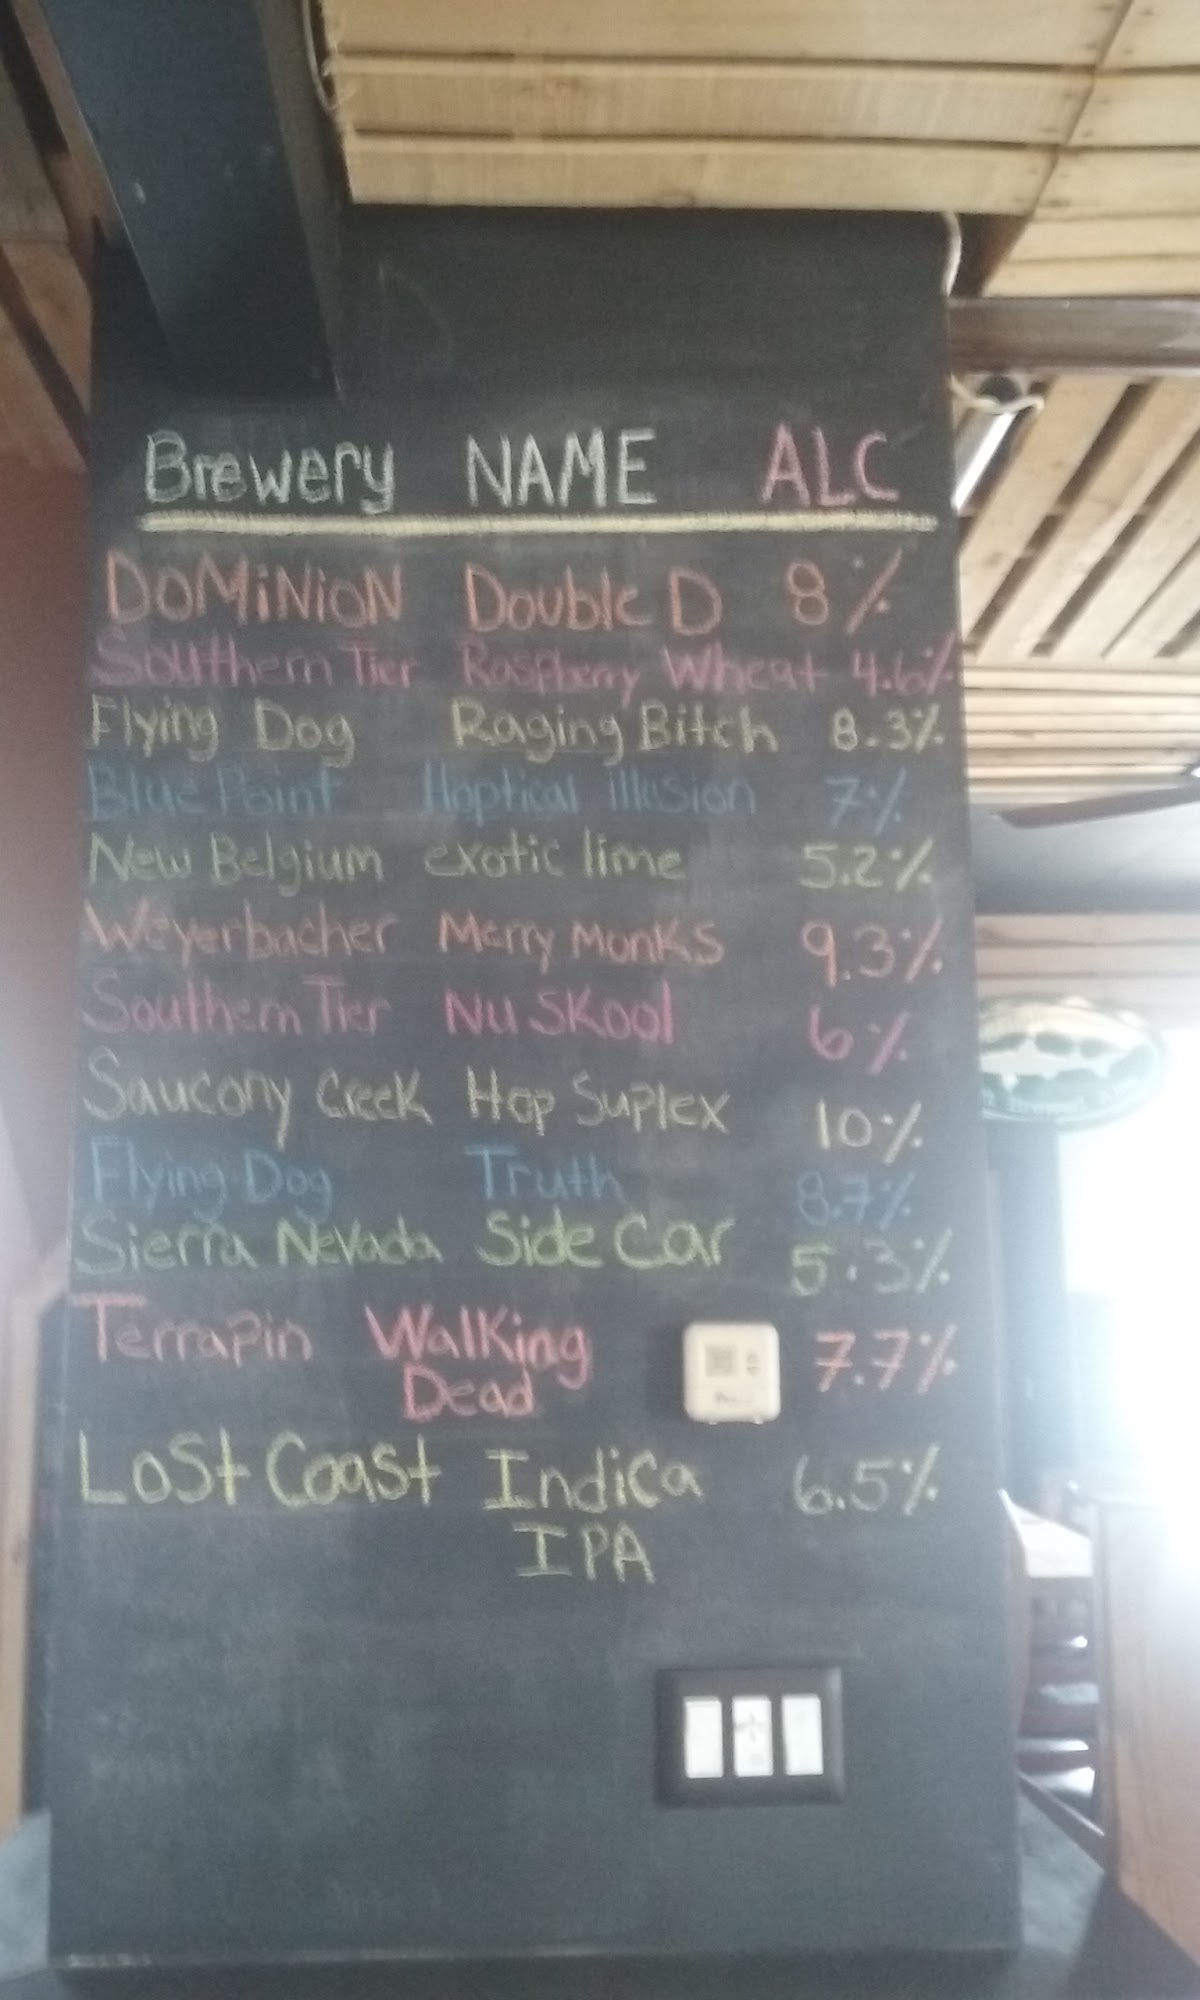 Brewery NAME ALC
DOMiNiON Double D 8%
Southern Tier Raspberry Wheat 4.6%
Flying Dog Raging Bitch 8.3%
Blue Point Hoptical illusion 7%
New Belgium exotic lime 5.2%
Weyerbacher Merry Monks 9.3%
Southern Tier Nu Skool 6%
Saucony Creek Hop Suplex 10%
Flying Dog Truth 8.7%
Sierra Nevada Side Car 5.3%
Terrapin Walking 7.7%
Dead
Lost Coast Indica 6.5%
IPA